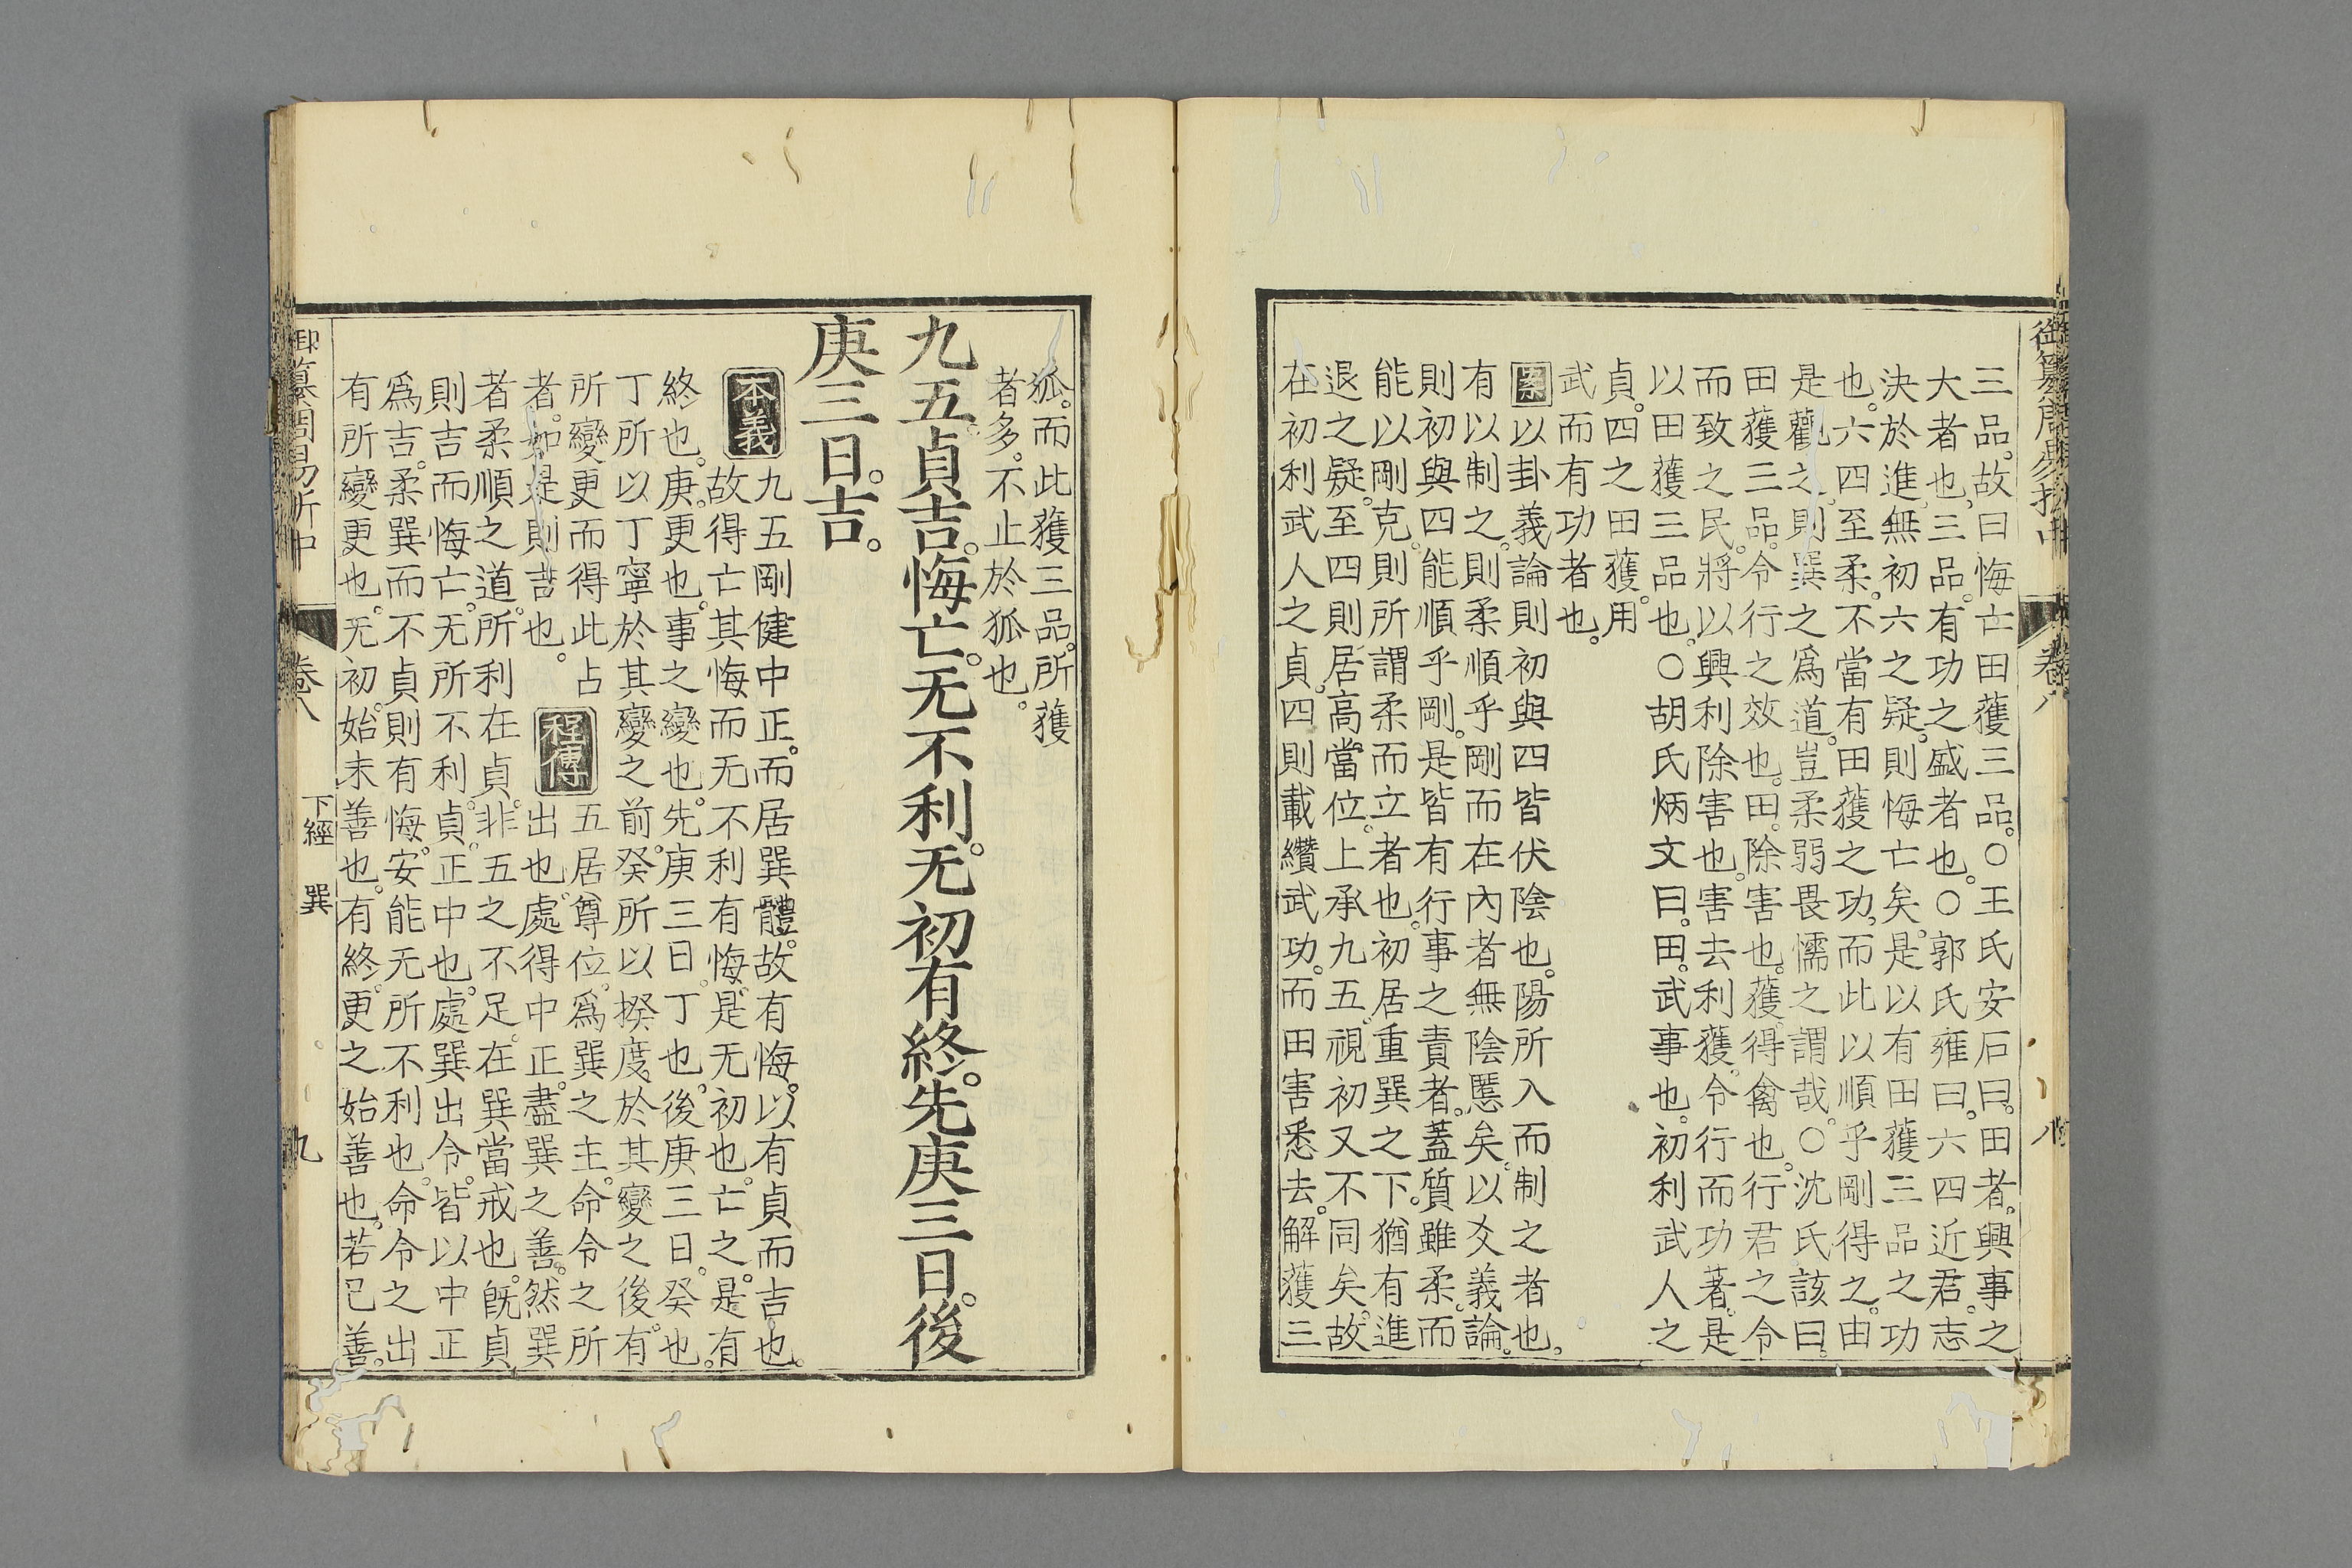 三品。故曰悔亡田獲三品。○王氏安石曰。田者。興事之
大者也。三品。有功之盛者也。○郭氏雍曰。六四近君。志
決於進。無初六之疑。則悔亡矣。是以有田獲三品之功
也。六四至柔。不當有田獲之功。而此以順乎剛得之。由
是觀之。則巽之爲道。豈柔弱畏懦之謂哉。○沈氏該曰。
田獲三品。令行之效也。田。除害也。獲。得禽也。行君之令
而致之民。將以興利除害也。害去利獲。令行而功著。是
以田獲三品也。○胡氏炳文曰。田。武事也。初利武人之
貞。四之田獲。用
武而有功者也。
案以卦義論則初與四皆伏陰也。陽所入而制之者也。
有以制之。則柔順乎剛而在內者無陰慝矣。以爻義論。
則初與四能順乎剛。是皆有行事之責者。蓋質雖柔。而
能以剛克。則所謂柔而立者也。初居重巽之下。猶有進
退之疑。至四則居高當位。上承九五。視初又不同矣。故
在初利武人之貞。四則載纘武功。而田害悉去。解獲三
狐。而此獲三品。所獲
者多。不止於狐也。
九五貞吉。悔亡。无不利。无初有終。先庚三日。後
庚三日。吉。
本義 九五剛健中正。而居巽體。故有悔。以有貞而吉也。
故得亡其悔而无不利有悔。是无初也。亡之。是有
終也。庚。更也。事之變也。先庚三日。丁也。後庚三日。癸也。
丁所以丁寧於其變之前。癸所以揆度於其變之後。有
所變更而得此占
者。如是則吉也。
程傳 五居尊位。爲巽之主。命令之所
出也。處得中正。盡巽之善。然巽
者柔順之道。所利在貞。非五之不足。在巽當戒也。旣貞
則吉而悔亡。无所不利。貞。正中也。處巽出令。皆以中正
爲吉。柔巽而不貞則有悔。安能无所不利也。命令之出
有所變更也。无初。始未善也。有終。更之始善也。若已善。
御纂周易折中 卷八 下經 巽 九